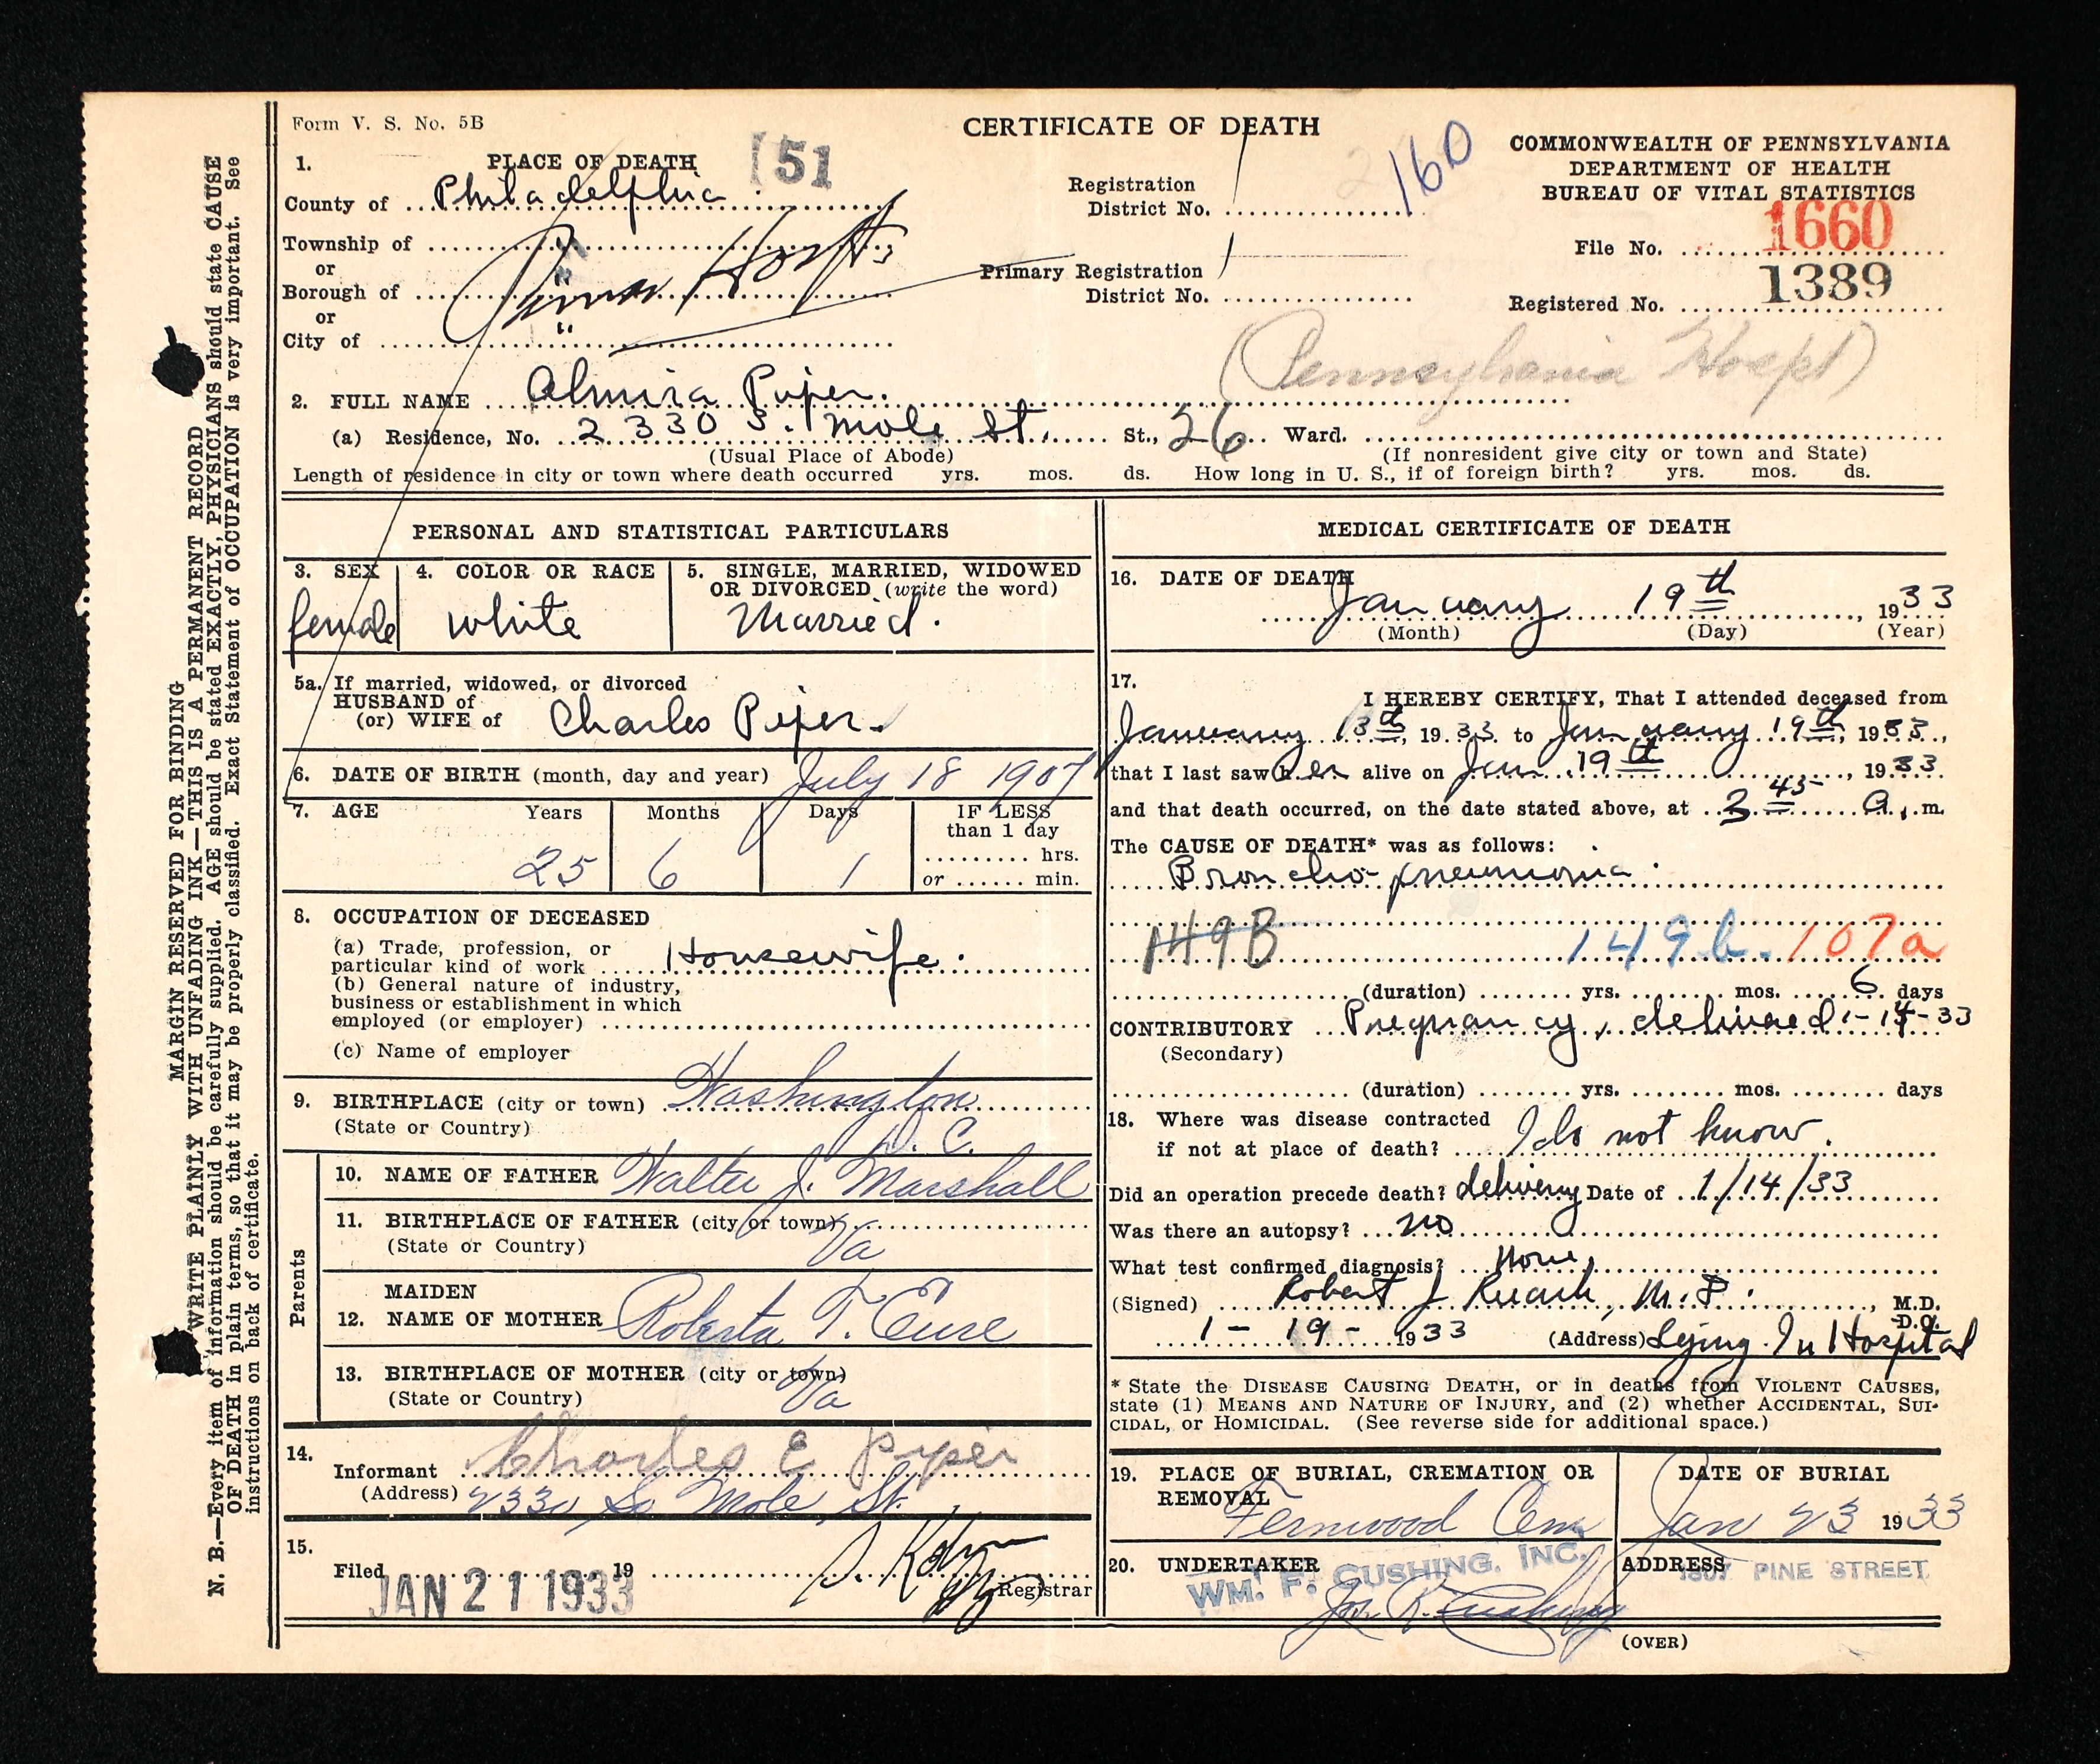 Form V. S. No. 5B
CERTIFICATE OF DEATH
COMMONWEALTH OF PENNSYLVANIA
DEPARTMENT OF HEALTH
BUREAU OF VITAL STATISTICS
1. PLACE OF DEATH 51
County of Philadelphia
Township of
or
Borough of
or
City of
Registration
District No. 160
Primary Registration
District No.
File No. 1660
Registered No. 1389
(Pennsylvania Hospt)
2. FULL NAME Almira Piper.
(a) Residence, No. 2330 S. Mole St. St., 26 Ward.
(Usual Place of Abode) (If nonresident give city or town and State)
Length of residence in city or town where death occurred yrs. mos. ds. How long in U. S., if of foreign birth? yrs. mos. ds.
PERSONAL AND STATISTICAL PARTICULARS
3. SEX
female
4. COLOR OR RACE
white
5. SINGLE, MARRIED, WIDOWED
OR DIVORCED (write the word)
Married.
5a. If married, widowed, or divorced
HUSBAND of
(or) WIFE of Charles Piper.
6. DATE OF BIRTH (month, day and year) July 18 1907
7. AGE Years Months Days IF LESS
than 1 day
hrs.
25 6 1 or min.
8. OCCUPATION OF DECEASED
(a) Trade, profession, or
particular kind of work Housewife.
(b) General nature of industry,
business or establishment in which
employed (or employer)
(c) Name of employer
9. BIRTHPLACE (city or town) Washington
(State or Country) D. C.
Parents
10. NAME OF FATHER Walter J. Marshall
11. BIRTHPLACE OF FATHER (city or town)
(State or Country) Va
MAIDEN
12. NAME OF MOTHER Roberta T. Eure
13. BIRTHPLACE OF MOTHER (city or town)
(State or Country) Va
14. Informant Charles E Piper
(Address) 2330 So Mole St.
15.
Filed JAN 21 1933 19
Registrar
MEDICAL CERTIFICATE OF DEATH
16. DATE OF DEATH
January 19th, 1933
(Month) (Day) (Year)
17. I HEREBY CERTIFY, That I attended deceased from
January 13th, 1933 to January 19th, 1933,
that I last saw her alive on Jan 19th, 1933
and that death occurred, on the date stated above, at 3 45 a. m.
The CAUSE OF DEATH* was as follows:
Broncho-pneumonia.
149B 149b. 107a
(duration) yrs. mos. 6 days
CONTRIBUTORY Pregnancy, delivered 1-14-33
(Secondary)
(duration) yrs. mos. days
18. Where was disease contracted
if not at place of death? I do not know.
Did an operation precede death? delivery Date of 1/14/33
Was there an autopsy? no
What test confirmed diagnosis? None
(Signed) Robert J M.D., M.D.
D.O.
1-19-1933 (Address) Lying In Hospital
* State the DISEASE CAUSING DEATH, or in deaths from VIOLENT CAUSES,
state (1) MEANS AND NATURE OF INJURY, and (2) whether ACCIDENTAL, SUI-
CIDAL, OR HOMICIDAL. (See reverse side for additional space.)
19. PLACE OF BURIAL, CREMATION OR
REMOVAL
Fernwood Cem
DATE OF BURIAL
Jan 23 1933
20. UNDERTAKER
WM. F. CUSHING, INC.
Cushing
ADDRESS
1807 PINE STREET
(OVER)
MARGIN RESERVED FOR BINDING
WRITE PLAINLY WITH UNFADING INK—THIS IS A PERMANENT RECORD
N. B.—Every item of information should be carefully supplied. AGE should be stated EXACTLY, PHYSICIANS should state CAUSE
OF DEATH in plain terms, so that it may be properly classified. Exact Statement of OCCUPATION is very important. See
instructions on back of certificate.